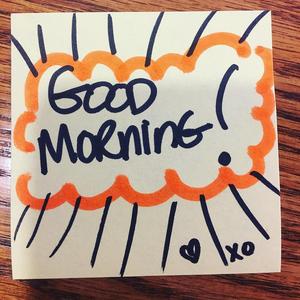 GOOD
MORNING!
♥ XO